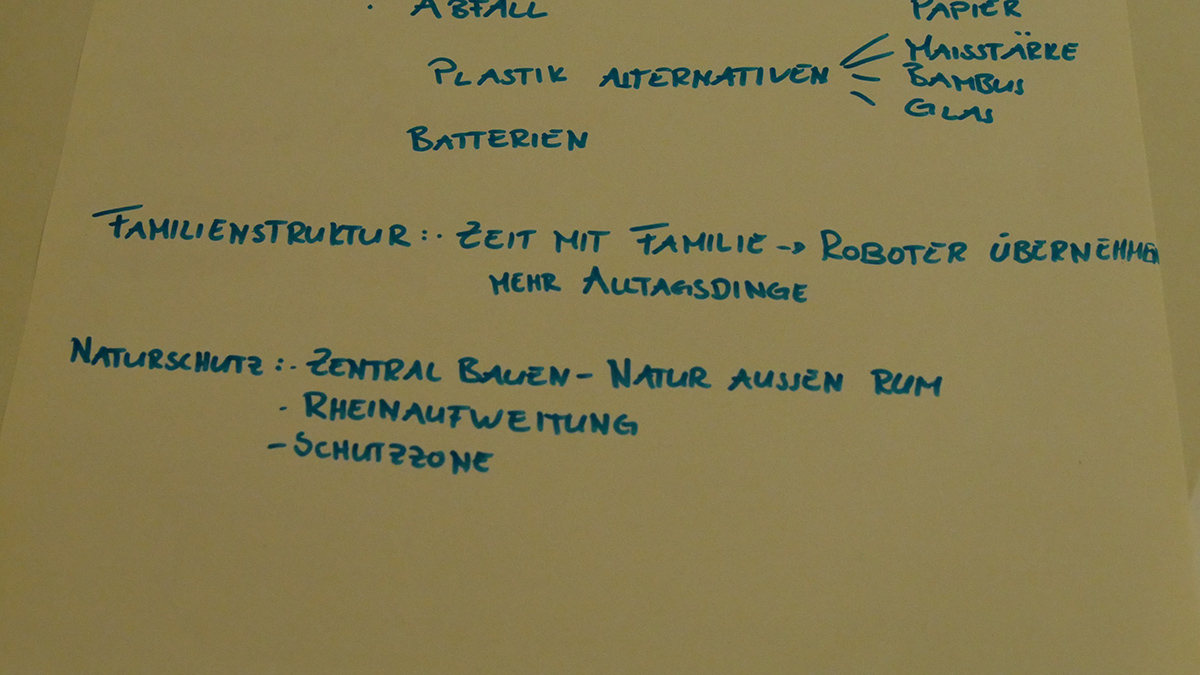 · ABFALL PAPIER
MAISSTÄRKE
PLASTIK ALTERNATIVEN BAMBUS
GLAS
BATTERIEN
FAMILIENSTRUKTUR: · ZEIT MIT FAMILIE -> ROBOTER ÜBERNEHMEN
MEHR ALLTAGSDINGE
NATURSCHUTZ: · ZENTRAL BAUEN - NATUR AUSSEN RUM
· RHEINAUFWEITUNG
- SCHUTZZONE